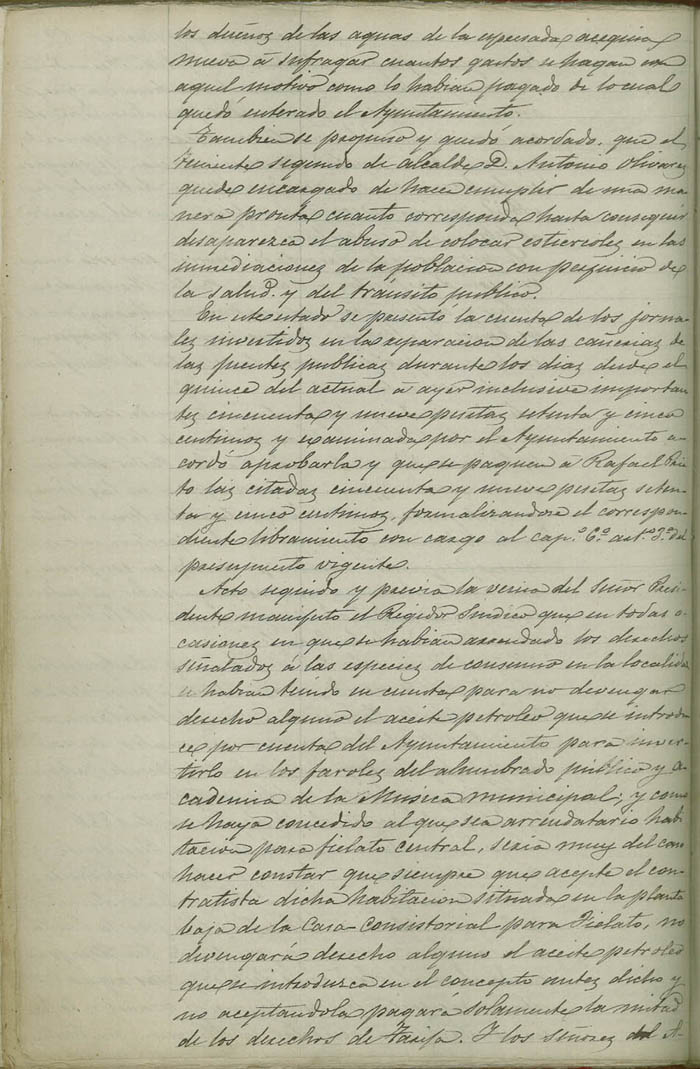 los dueños de las aguas de la espresada acequia
nueva á sufragar cuantos gastos se hagan con
aquel motivo como lo habian pagado de lo cual
quedó enterado el Ayuntamiento.
Tambien se propuso y quedó acordado, que el
teniente segundo de alcalde D. Antonio Olivares
quede encargado de hacer cumplir de una ma
nera pronta cuanto corresponda hasta conseguir
desaparezca el abuso de colocar estiercoles en las
inmediaciones de la poblacion con perjuicio de
la salud y del tránsito publico.
En este estado se presento la cuenta de los jorna-
les invertidos en la reparacion de las cañerias de
las fuentes publicas durante los dias desde el
quince del actual á ayer inclusive importan
tes cincuenta y nueve pesetas setenta y cinco
centimos y examinada por el Ayuntamiento a-
cordó aprobarla y que se paguen á Rafael Prie
to las citadas cincuenta y nueve pesetas seten-
ta y cinco centimos, formalizandose el correspon-
diente libramiento con cargo al cap.º 6.º art.º 3.º del
presupuesto vigente.
Acto seguido y previa la venia del Señor Presi-
dente manifesto el Regidor Sindico que en todas o-
casiones en que se habian arrendado los derechos
señalados á las especies de consumo en la localidad
se habian tenido en cuenta para no devengar
derecho alguno el aceite petroleo que se introdu
ce por cuenta del Ayuntamiento para inver-
tirlo en los faroles del alumbrado publico y A-
cademia de la Musica municipal; y como
se haya concedido al que sea arrendatario habi
tacion para fielato central, seria muy del caso
hacer constar que siempre que acepte el con-
tratista dicha habitacion situada en la planta
baja de la Casa-Consistorial para Fielato, no
devengará derecho alguno el aceite petroleo
que se introduzca en el concepto antes dicho y
no aceptandola pagará solamente la mitad
de los derechos de Tarifa. Y los señores del A-